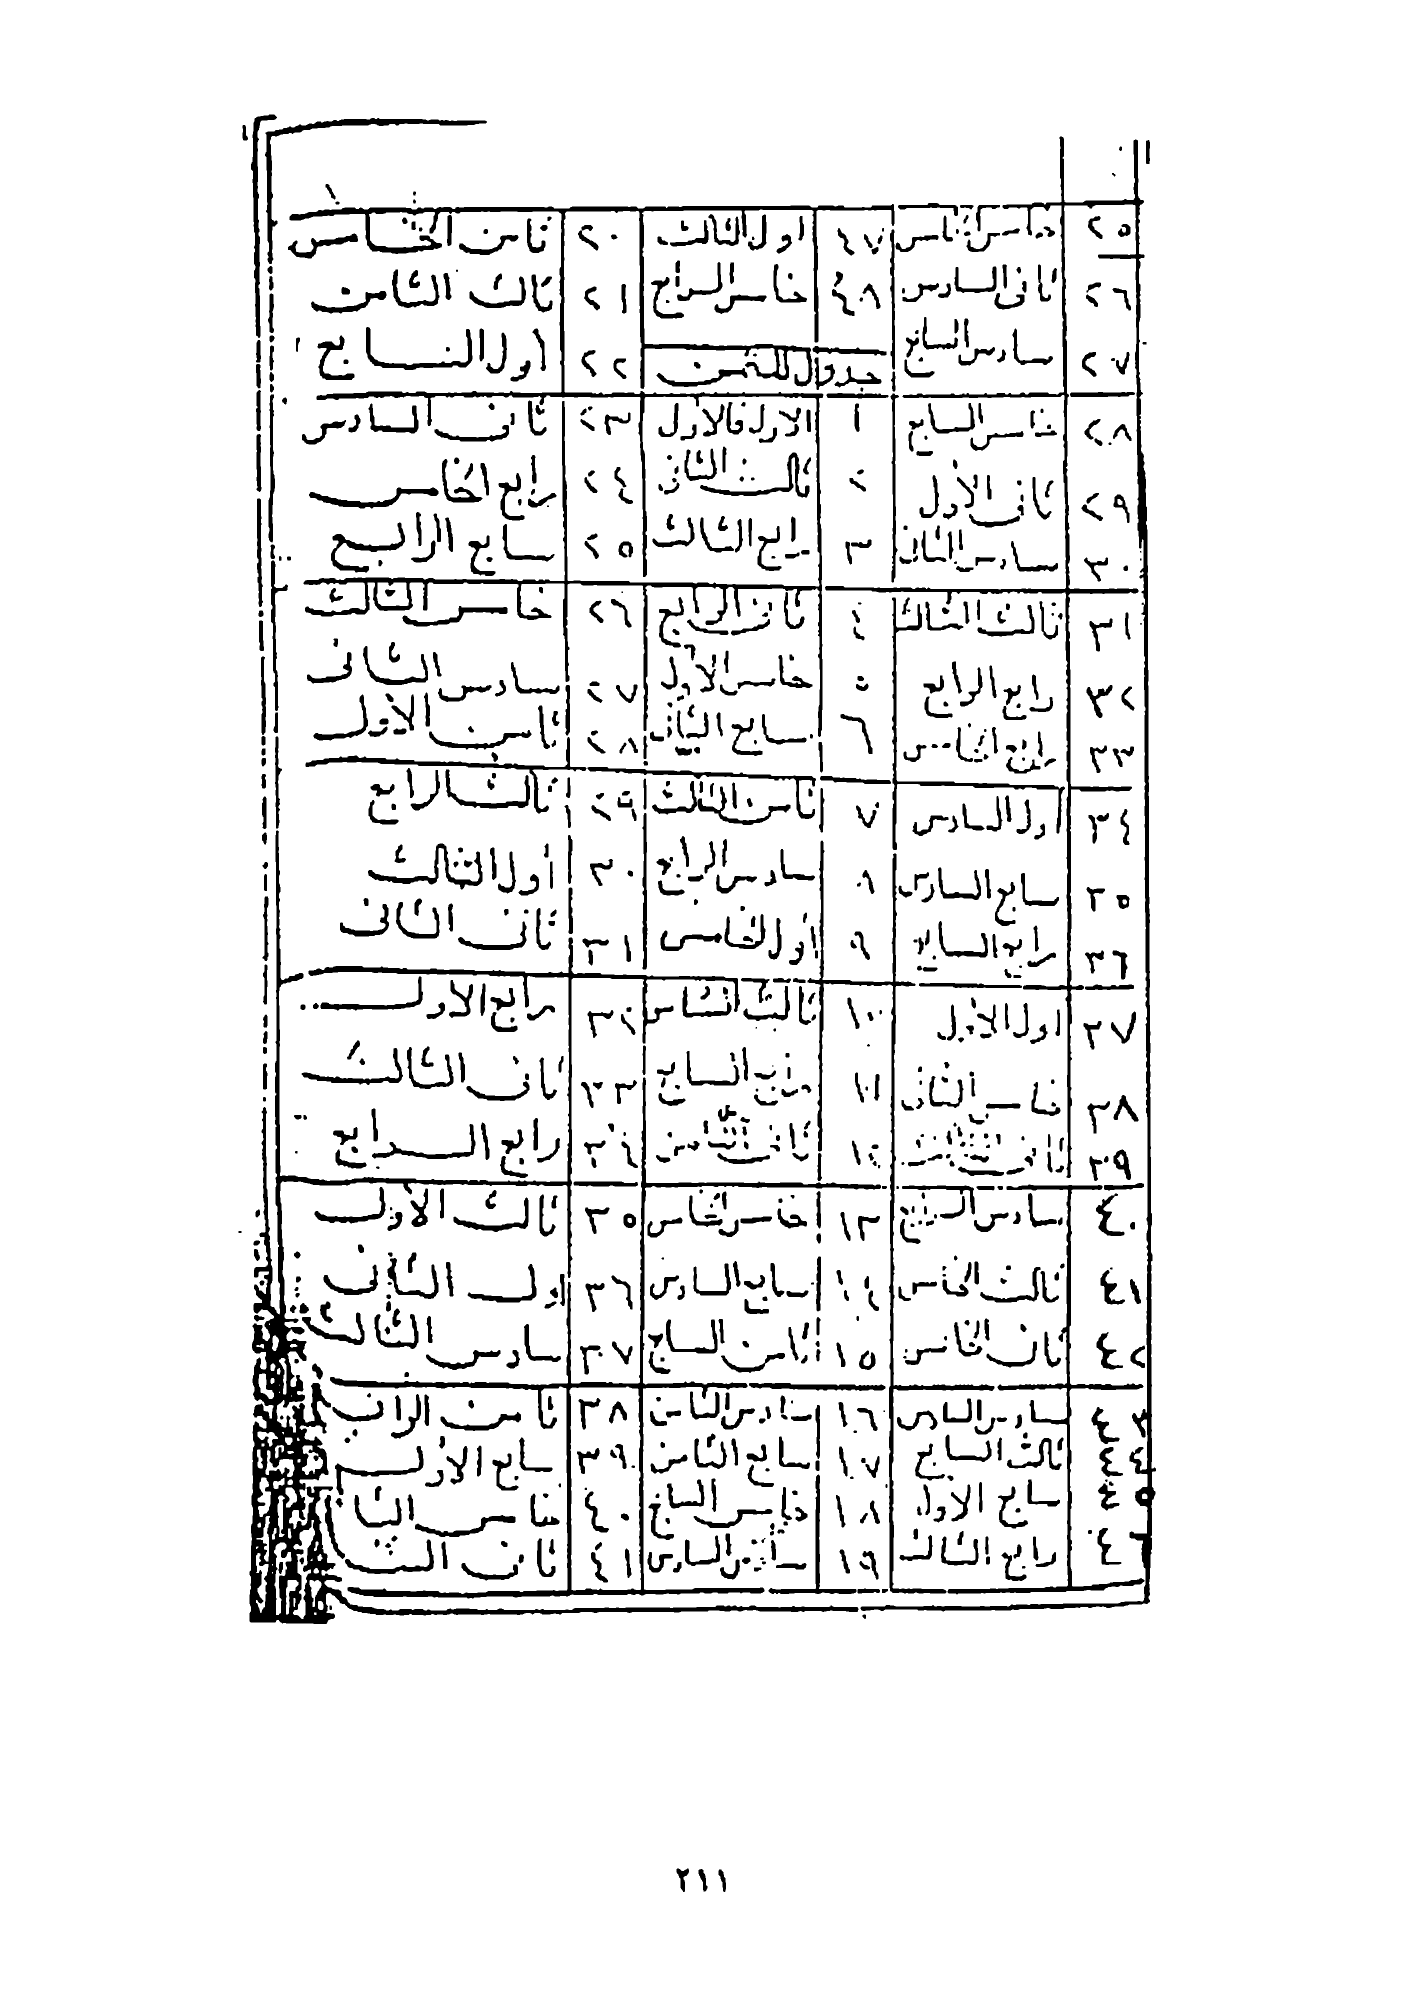 ٢٥ خامس الخامس ٤٧ اول الثالث ٢٠ ثامن الخامس
٢٦ ثانى السادس ٤٨ خامس الرابع ٢١ ثالث الثامن
٢٧ سادس السابع جدول المثمن ٢٢ أول السابع
٢٨ خامس السابع ١ الاول فالاول ٢٣ ثانى السادس
٢٩ ثانى الأول ٢ ثالث الثانى ٢٤ رابع الخامس
٣٠ سادس الثانى ٣ رابع الثالث ٢٥ سابع الرابع
٣١ ثالث الثالث ٤ ثانى الرابع ٢٦ خامس الثالث
٣٢ رابع الرابع ٥ خامس الأول ٢٧ سادس الثانى
٣٣ رابع الخامس ٦ سابع الثانى ٢٨ ثامن الأول
٣٤ اول السادس ٧ ثامن الثالث ٢٩ ثالث الرابع
٣٥ سابع السادس ٨ سادس الرابع ٣٠ أول الثالث
٣٦ رابع السابع ٩ أول الخامس ٣١ ثانى الثانى
٣٧ اول الأول ١٠ ثالث السادس ٣٢ رابع الأول
٣٨ خامس الثانى ١١ رابع السابع ٣٣ ثانى الثالث
٣٩ ١٢ ثانى الثامن ٣٤ رابع الرابع
٤٠ سادس الرابع ١٣ خامس الخامس ٣٥ ثالث الأول
٤١ ثالث الخامس ١٤ سابع السادس ٣٦ اول الثانى
٤٢ ثانى الخامس ١٥ ثامن السابع ٣٧ سادس الثالث
٤٣ سادس السادس ١٦ سادس الثامن ٣٨ ثامن الرابع
٤٤ ثالث السابع ١٧ سابع الثامن ٣٩ سابع الأول
٤٥ سابع الاول ١٨ خامس السابع ٤٠ خامس
٤٦ رابع الثالث ١٩ سادس السادس ٤١ ثانى
٢١١